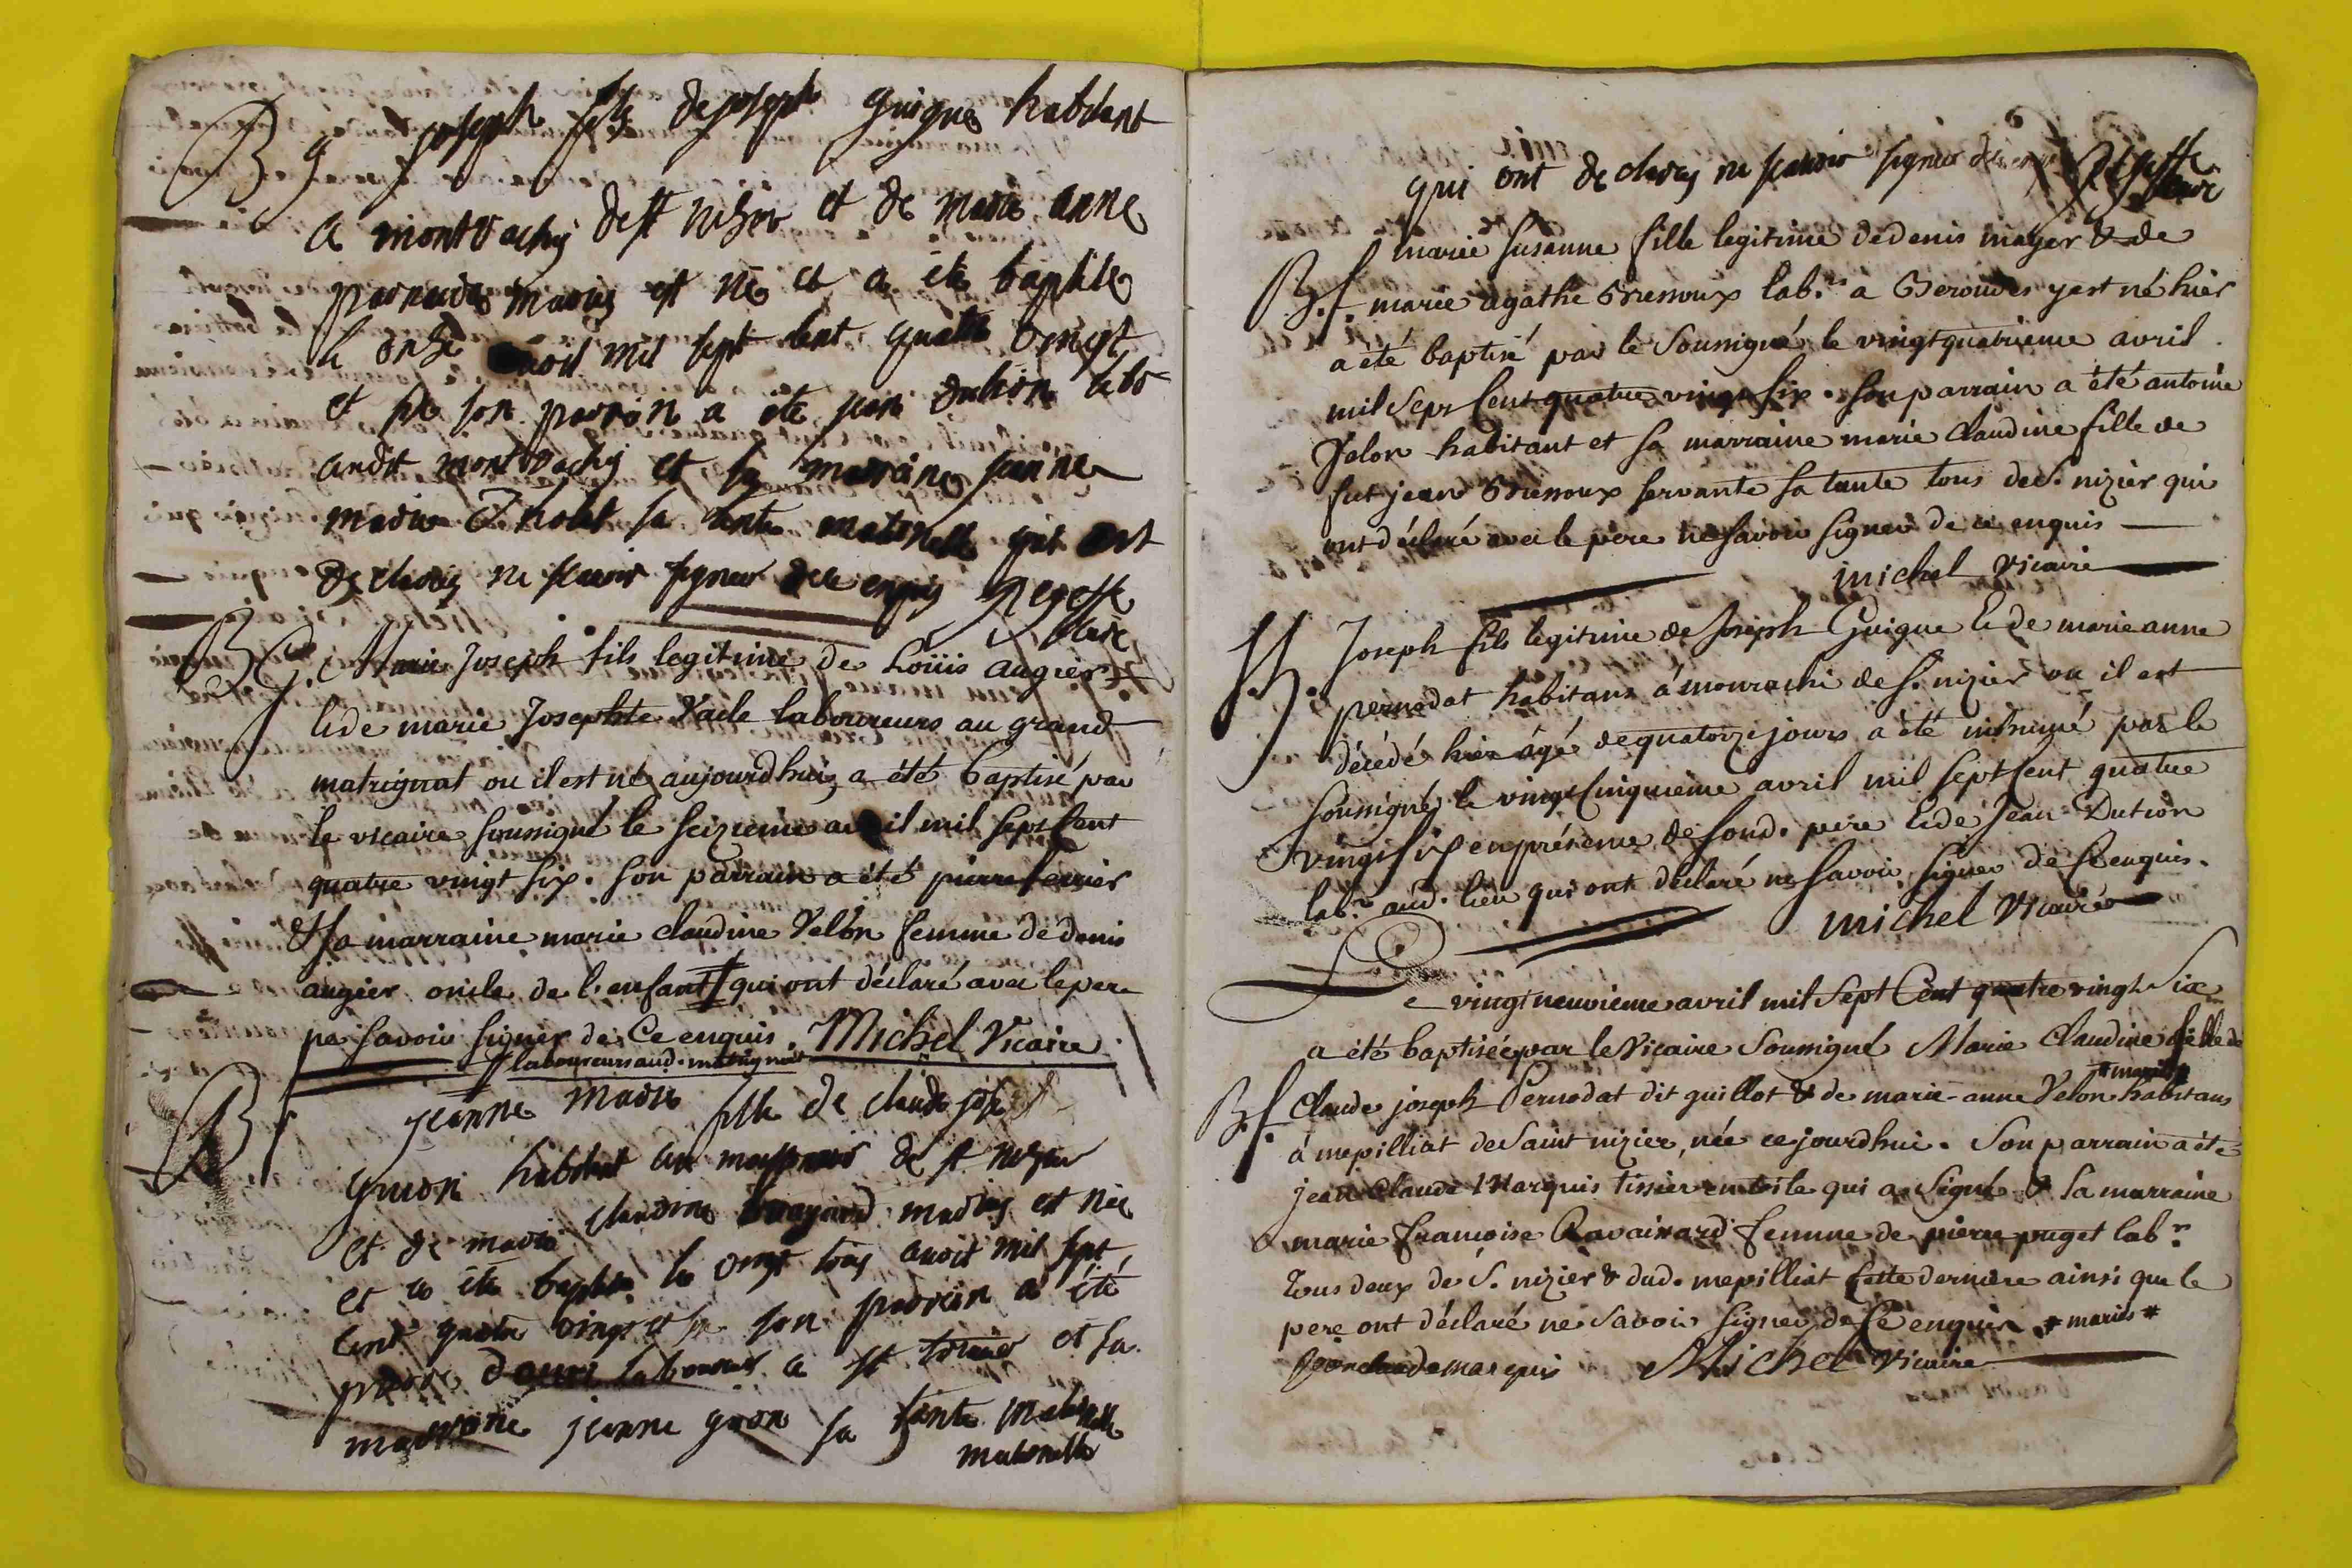 B g joseph fils de joseph guigue habitant
a montrachy de st nizier et de marie anne
pernodat mariés est né et a été baptisé
le onze avril mil sept cent quatre vingt
et six son parrin a été jean dution labr
audit montrachy et sa marraine jeanne
marie sa tante maternelle qui ont
declarés ne scavoir signer de ce enquis
B G. Marie Joseph fils legitime de Loüis augier
& de marie Josephte Vacle laboureurs au grand
matrignat ou il est né aujourdhui, a été baptisé par
le vicaire soussigné le seizieme avril mil sept cent
quatre vingt six. son parrain a été pierre ferrier
& sa marraine marie claudine Velon femme de denis
augier oncle de l'enfant qui ont déclaré avec le pere
ne savoir signer de Ce enquis. Michel Vicaire
laboureurs aud. matrignat
B f jeanne marie fille de claude joseph
guion habitant au de st nizier
et de marie claudine mariés est née
et a été baptisée le vingt trois avril mil sept
cent quatre vingt et six son parrain a été
pierre laboureur a st trivier et sa
marraine jeanne guion sa tante maternelle
maternelle
qui ont declarés ne scavoir signer de ce enquis
marie susanne fille legitime de denis mayer & de
B. f. marie agathe Bressoux lab.rs a Beroudes y est né hier
a été baptisé par le soussigné le vingtquatrieme avril
mil sept cent quatre vingt six. son parrain a été antoine
Velon habitant et sa marraine marie claudine fille de
fut jean Bressoux servante sa tante tous de S. nizier qui
ont déclaré avec le père ne savoir signer de ce enquis
michel vicaire
Joseph fils legitime de Joseph Guigue & de marie anne
pernodat habitans à mourachi de S. nizier ou il est
décédé hier âgé de quatorze jours a été inhumé par le
soussigné le vingt cinquieme avril mil sept cent quatre
vingt six en présence de sond. pere & de Jean Dution
lab.r aud. lieu qui ont déclaré ne savoir signer de Ce enquis.
michel Vicaire
Le vingt neuvieme avril mil Sept Cent quatre vingt Six
a été baptisée par le Vicaire Soussigné Marie Claudine fille de
B. f. Claude joseph Pernodat dit guillot & de marie-anne Velon habitans
à mepilliat de Saint nizier, née ce jourdhui. Son parrain a été
jean Claude Marquis tissier en toile qui a Signé & Sa marraine
marie francoise Ravainard femme de pierre puget lab.r
tous deux de S. nizier & dud. mepilliat cette derniere ainsi que le
pere ont déclaré ne savoir signer de Ce enquis * mariés *
jean claude marquis Michel Vicaire